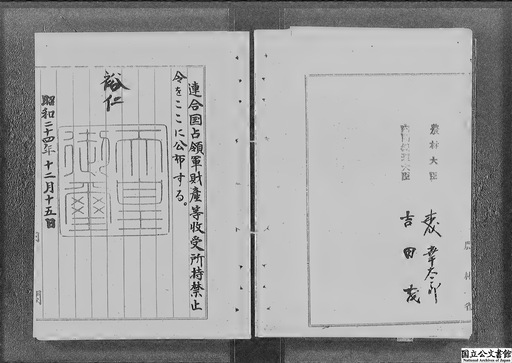 農林省
農林大臣
森幸太郎
内閣総理大臣
吉田茂
連合国占領軍財産等收受所持禁止
令をここに公布する。
裕仁
天皇
御璽
昭和二十四年十二月十五日
国立公文書館
National Archives of Japan